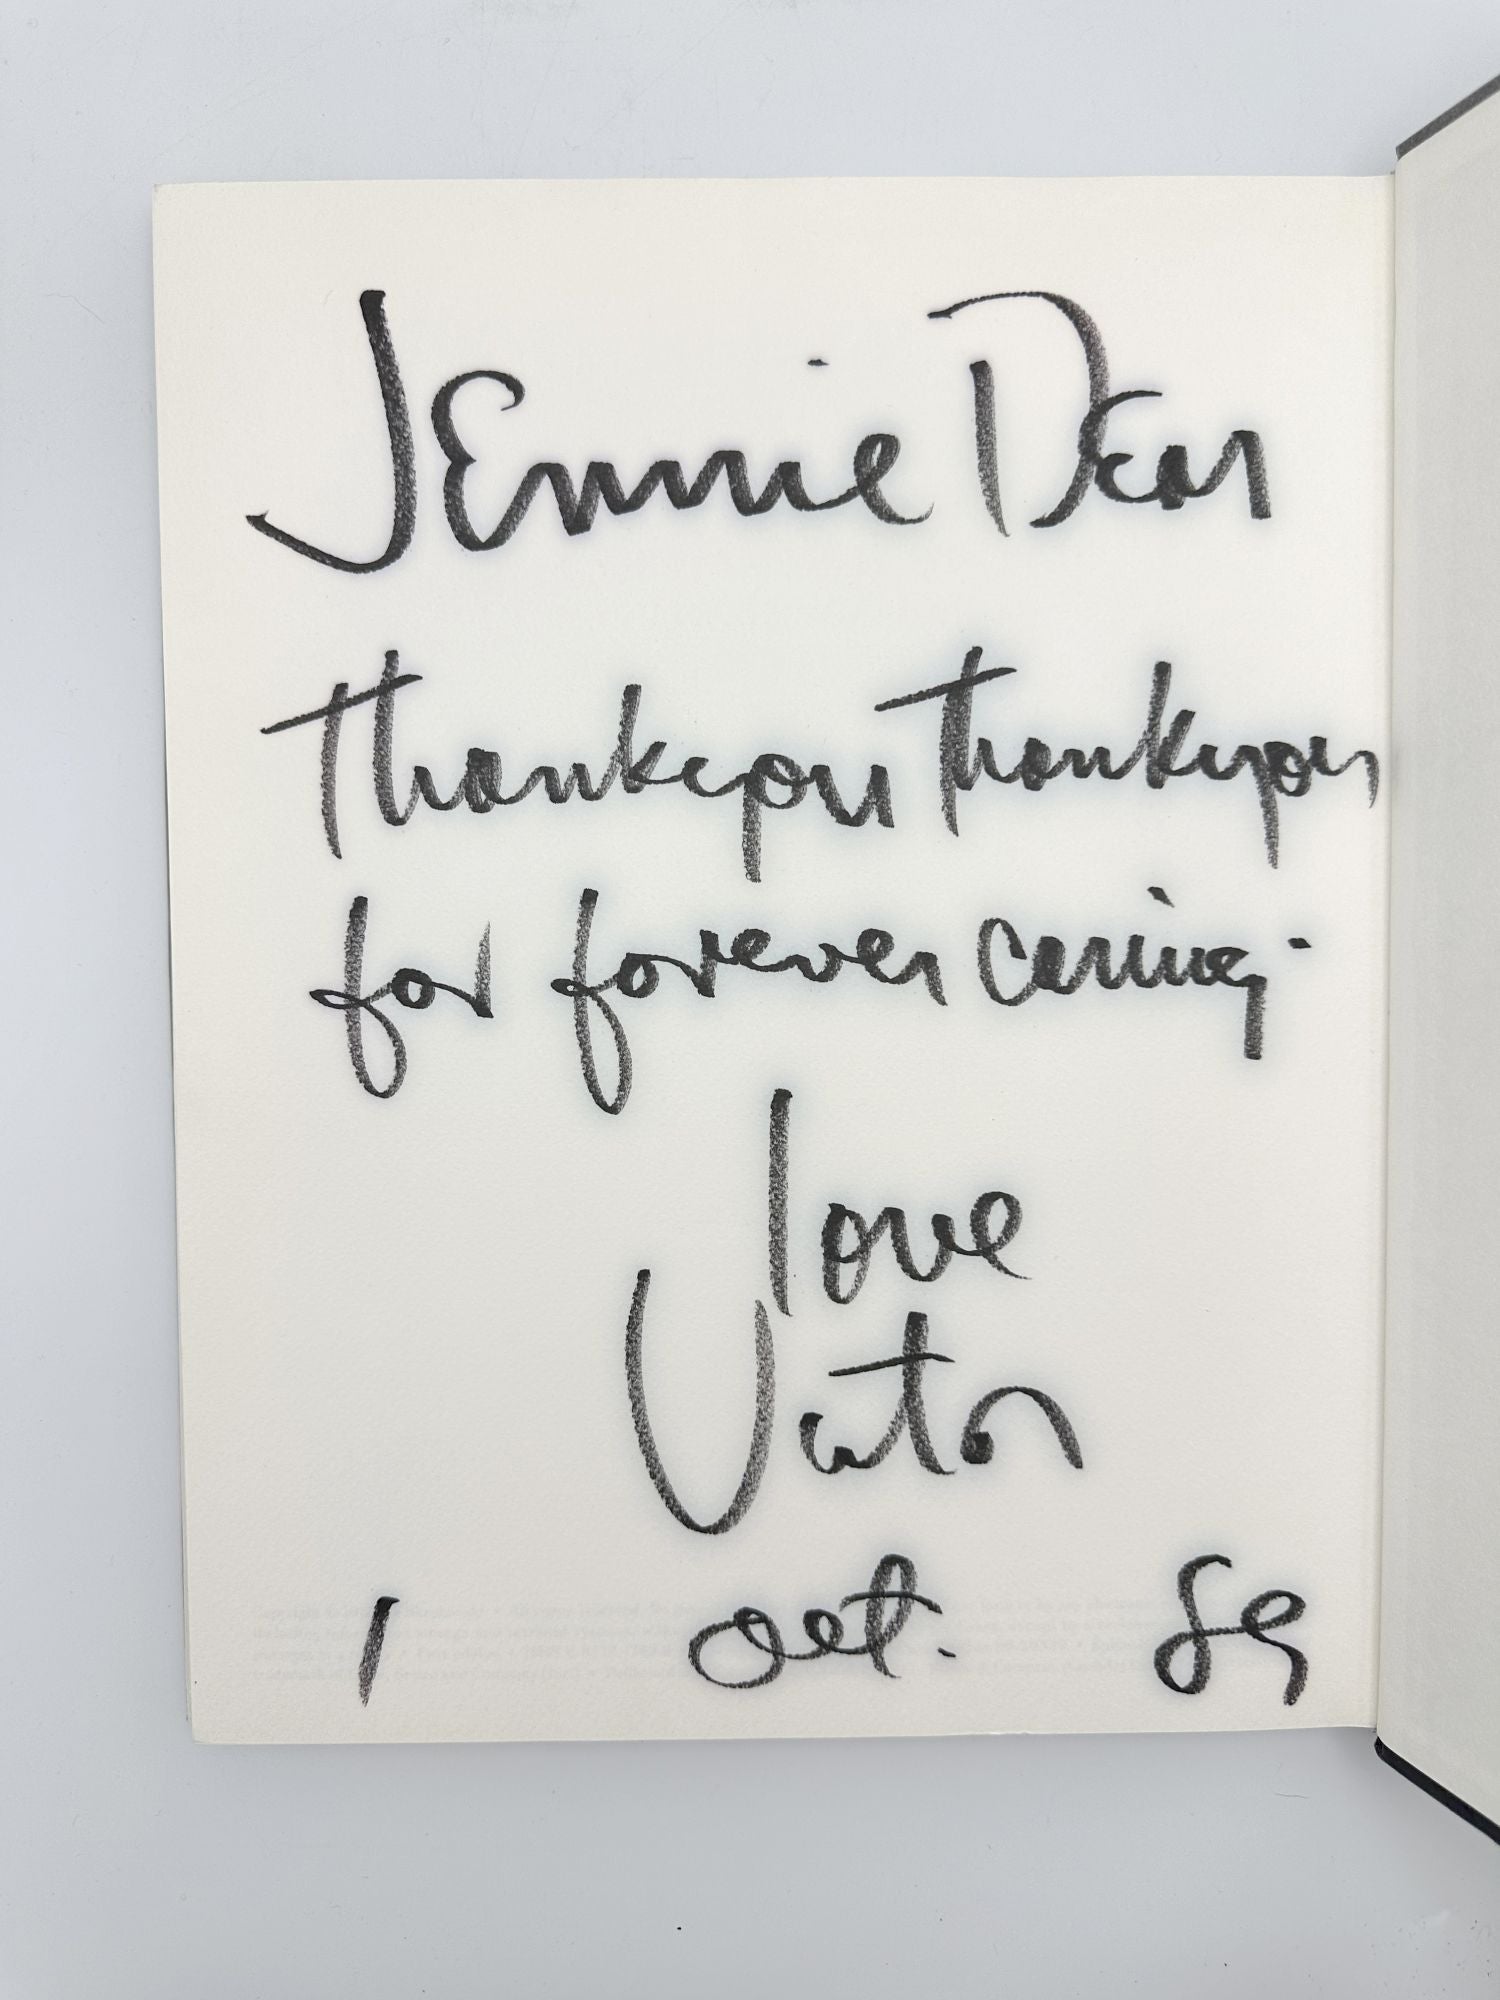 Jennie Dear
Thankyou Thankyou
for forever caring -
love
Victor
1 Oct. 89